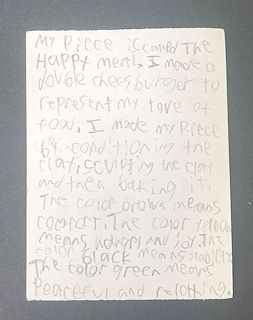 My Piece is called The
Happy meal. I made a
double cheesburger to
represent my love of
food. I made my Piece
by conditioning the
clay, sculpting the clay
and then baking it.
The color brown means
comfort. The color yellow
means hungry and joy. The
color black means stability.
The color green means
Peaceful and relaxing.